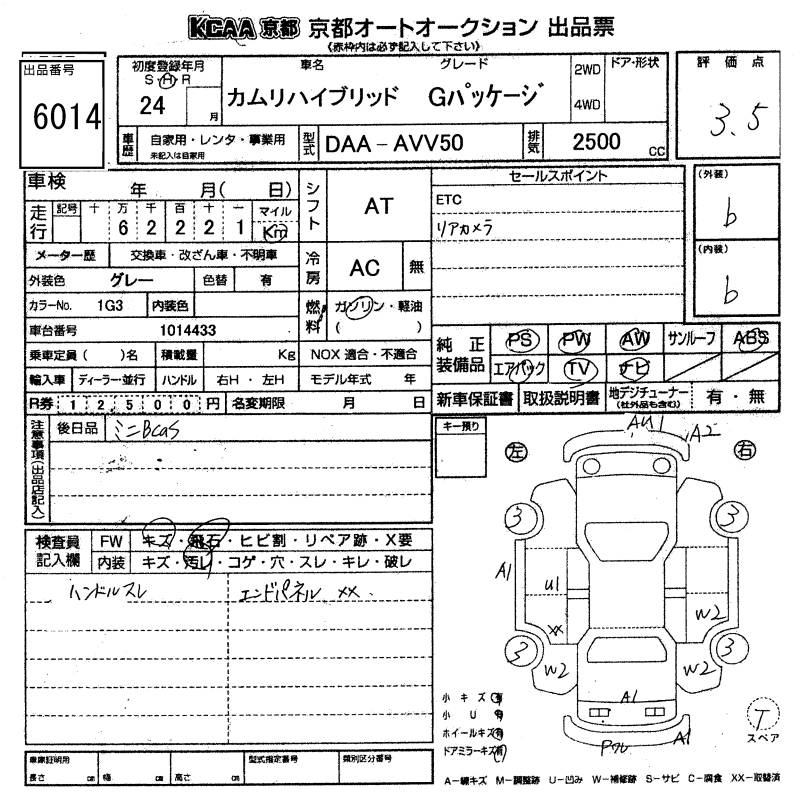 KCAA 京都 京都オートオークション 出品票
《赤枠内は必ず記入して下さい》
出品番号
6014
初度登録年月
S・H・R
24 月
車名 グレード
カムリハイブリッド Gパッケージ
2WD
4WD
ドア・形状
評価点
3.5
車歴
自家用・レンタ・事業用
未記入は自家用
型式
DAA-AVV50
排気
2500 cc
車検 年 月( 日)
走行
記号 十 万 千 百 十 一 マイル
6 2 2 2 1 Km
メーター歴 交換車・改ざん車・不明車
外装色 グレー 色替 有
カラーNo. 1G3 内装色
車台番号 1014433
乗車定員( )名 積載量 Kg
輸入車 ディーラー・並行 ハンドル 右H・左H
R券 12,500円 名変期限 月 日
シフト AT
冷房 AC 無
燃料 ガソリン・軽油
( )
NOX 適合・不適合
モデル年式 年
セールスポイント
ETC
リアカメラ
(外装)
b
(内装)
b
純正装備品
PS PW AW サンルーフ ABS
エアバック TV ナビ
新車保証書 取扱説明書 地デジチューナー(社外品も含む) 有・無
注意事項(出品店記入)
後日品 ミニBcas
検査員記入欄
FW キズ・飛石・ヒビ割・リペア跡・X要
内装 キズ・汚レ・コゲ・穴・スレ・キレ・破レ
ハンドルスレ
エンドパネル XX.
キー預り
左 右
AU1
A2
3 3
A1
U1
XX
W2
3 3
W2 W2
A1
A1
小キズ 有
小U 有
ホイールキズ 有
ドアミラーキズ
T
スペア
車庫証明用
長さ cm 幅 cm 高さ cm
型式指定番号
類別区分番号
A-線キズ M-調整跡 U-凹み W-補修跡 S-サビ C-腐食 XX-取替済